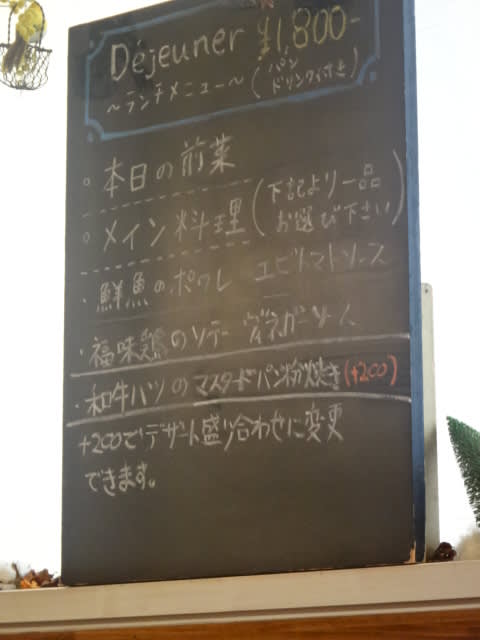 Déjeuner ¥1,800-
～ランチメニュー～ (パン
ドリンク付き)
。本日の前菜
。メイン料理 (下記より一品
お選び下さい)
・鮮魚のポワレ エビトマトソース
・福味鶏のソテー ヴィネガーソース
・和牛ハツのマスタードパン粉焼き(+200)
+200でデザート盛り合わせに変更
できます。